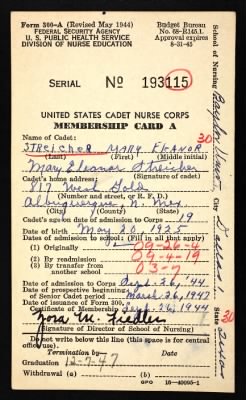 Form 300-A (Revised May 1944)
FEDERAL SECURITY AGENCY
U. S. PUBLIC HEALTH SERVICE
DIVISION OF NURSE EDUCATION
Budget Bureau
No. 68-R145.1.
Approval expires
8-31-45
SERIAL No 193115
UNITED STATES CADET NURSE CORPS
MEMBERSHIP CARD A
Name of Cadet: 30
STREICHER MARY ELEANOR
(Last) (First) (Middle initial)
Mary Eleanor Streicher
Cadet's home address: (Signature of cadet)
817 West Gold
(Number and street, or R. F. D.)
Albuquerque, N. Mex.
Cadet's age on date of admission to Corps 19
Date of birth May 20, 1925
Dates of admission to school: (Fill in all that apply)
(1) Originally 09-26-4
(2) By readmission 09-4-19
(3) By transfer from 03-7
another school
Date of admission to Corps Sept. 26, '44
Date of prospective
Senior Cadet period March 26, 1947
Date of issuance of Form 300,
Certificate of Membership Sept. 26, 1944
Zora M. Fiedler
(Signature of Director of School of Nursing)
Do not write below this line (this space is for central
control)
Termination by Date
Graduation 12-7-47
GPO 16-40095-1
School of Nursing Baylor Univ.
City Dallas 1.
State Texas
30